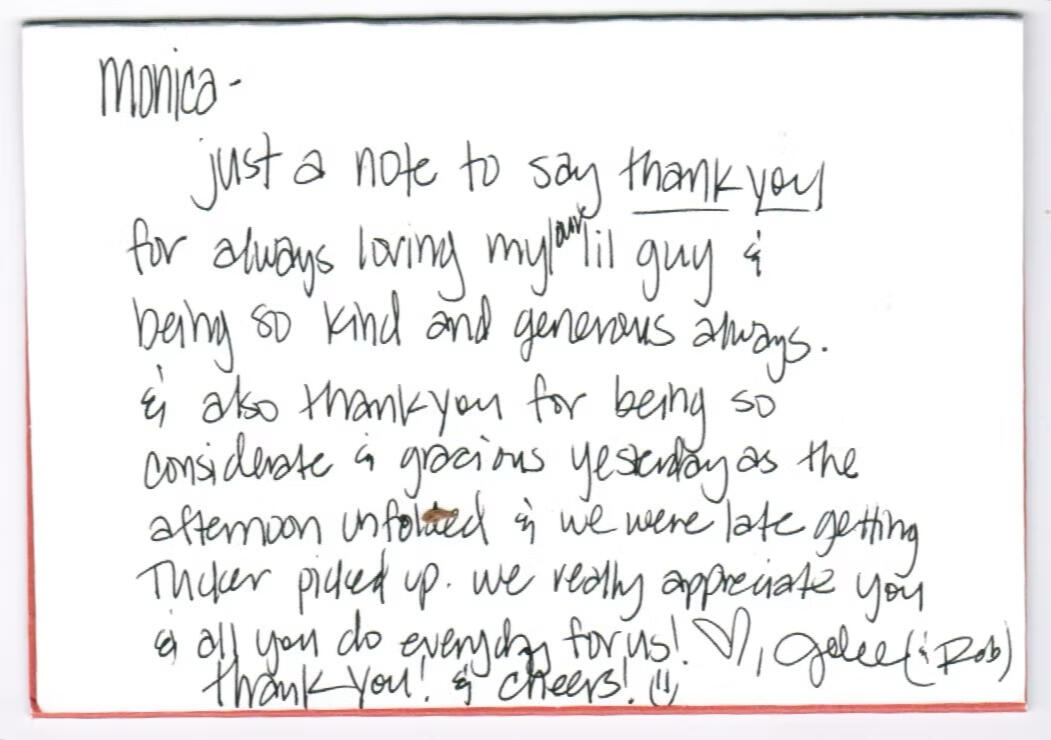 Monica -
just a note to say thank you
for always loving my/our lil guy &
being so kind and generous always.
& also thank you for being so
considerate & gracious yesterday as the
afternoon unfolded & we were late getting
Tucker picked up. we really appreciate you
& all you do everyday for us! ♡, (& Rob)
thank you! & cheers! :)